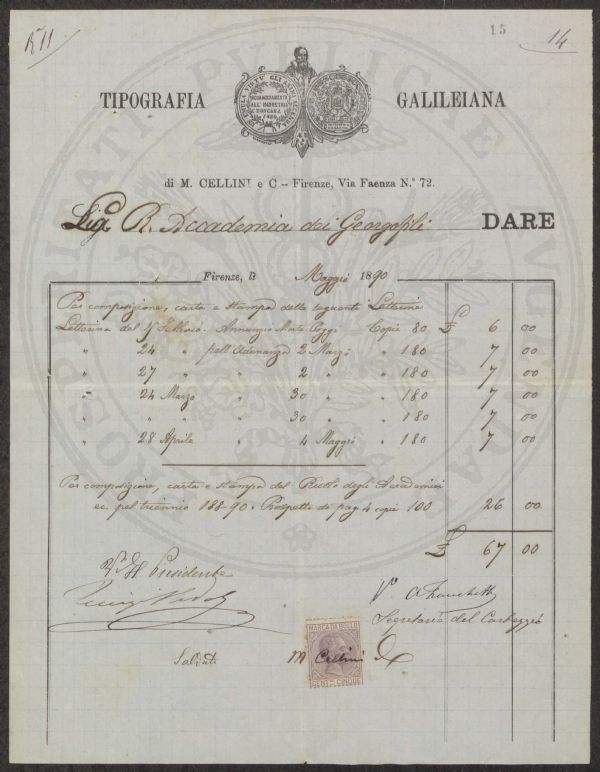 K 11
15
14
TIPOGRAFIA GALILEIANA
di M. CELLINI e C – Firenze, Via Faenza N.° 72.
R. Accademia dei Georgofili DARE
Firenze, li Maggio 1890
Per composizione, carta e stampa delle seguenti Letterine
Letterina del Febbraio. Annunzio Morte Poggi Copie 80 £ 6 00
" 24 " pell'Adunanza 2 Marzo " 180 7 00
" 27 " " 2 " " 180 7 00
" 24 Marzo " 30 " " 180 7 00
" " " " 30 " " 180 7 00
" 28 Aprile " 4 Maggio " 180 7 00
Per composizione, carta e stampa del Ruolo degli Accademici
ec. pel triennio 188-90. Prospetto di pag. 4 copie 100 26 00
£ 67 00
Il Presidente
V° A Franchetti
Segretario del Carteggio
MARCA DA BOLLO
Saldato M Cellini
CENT. CINQUE